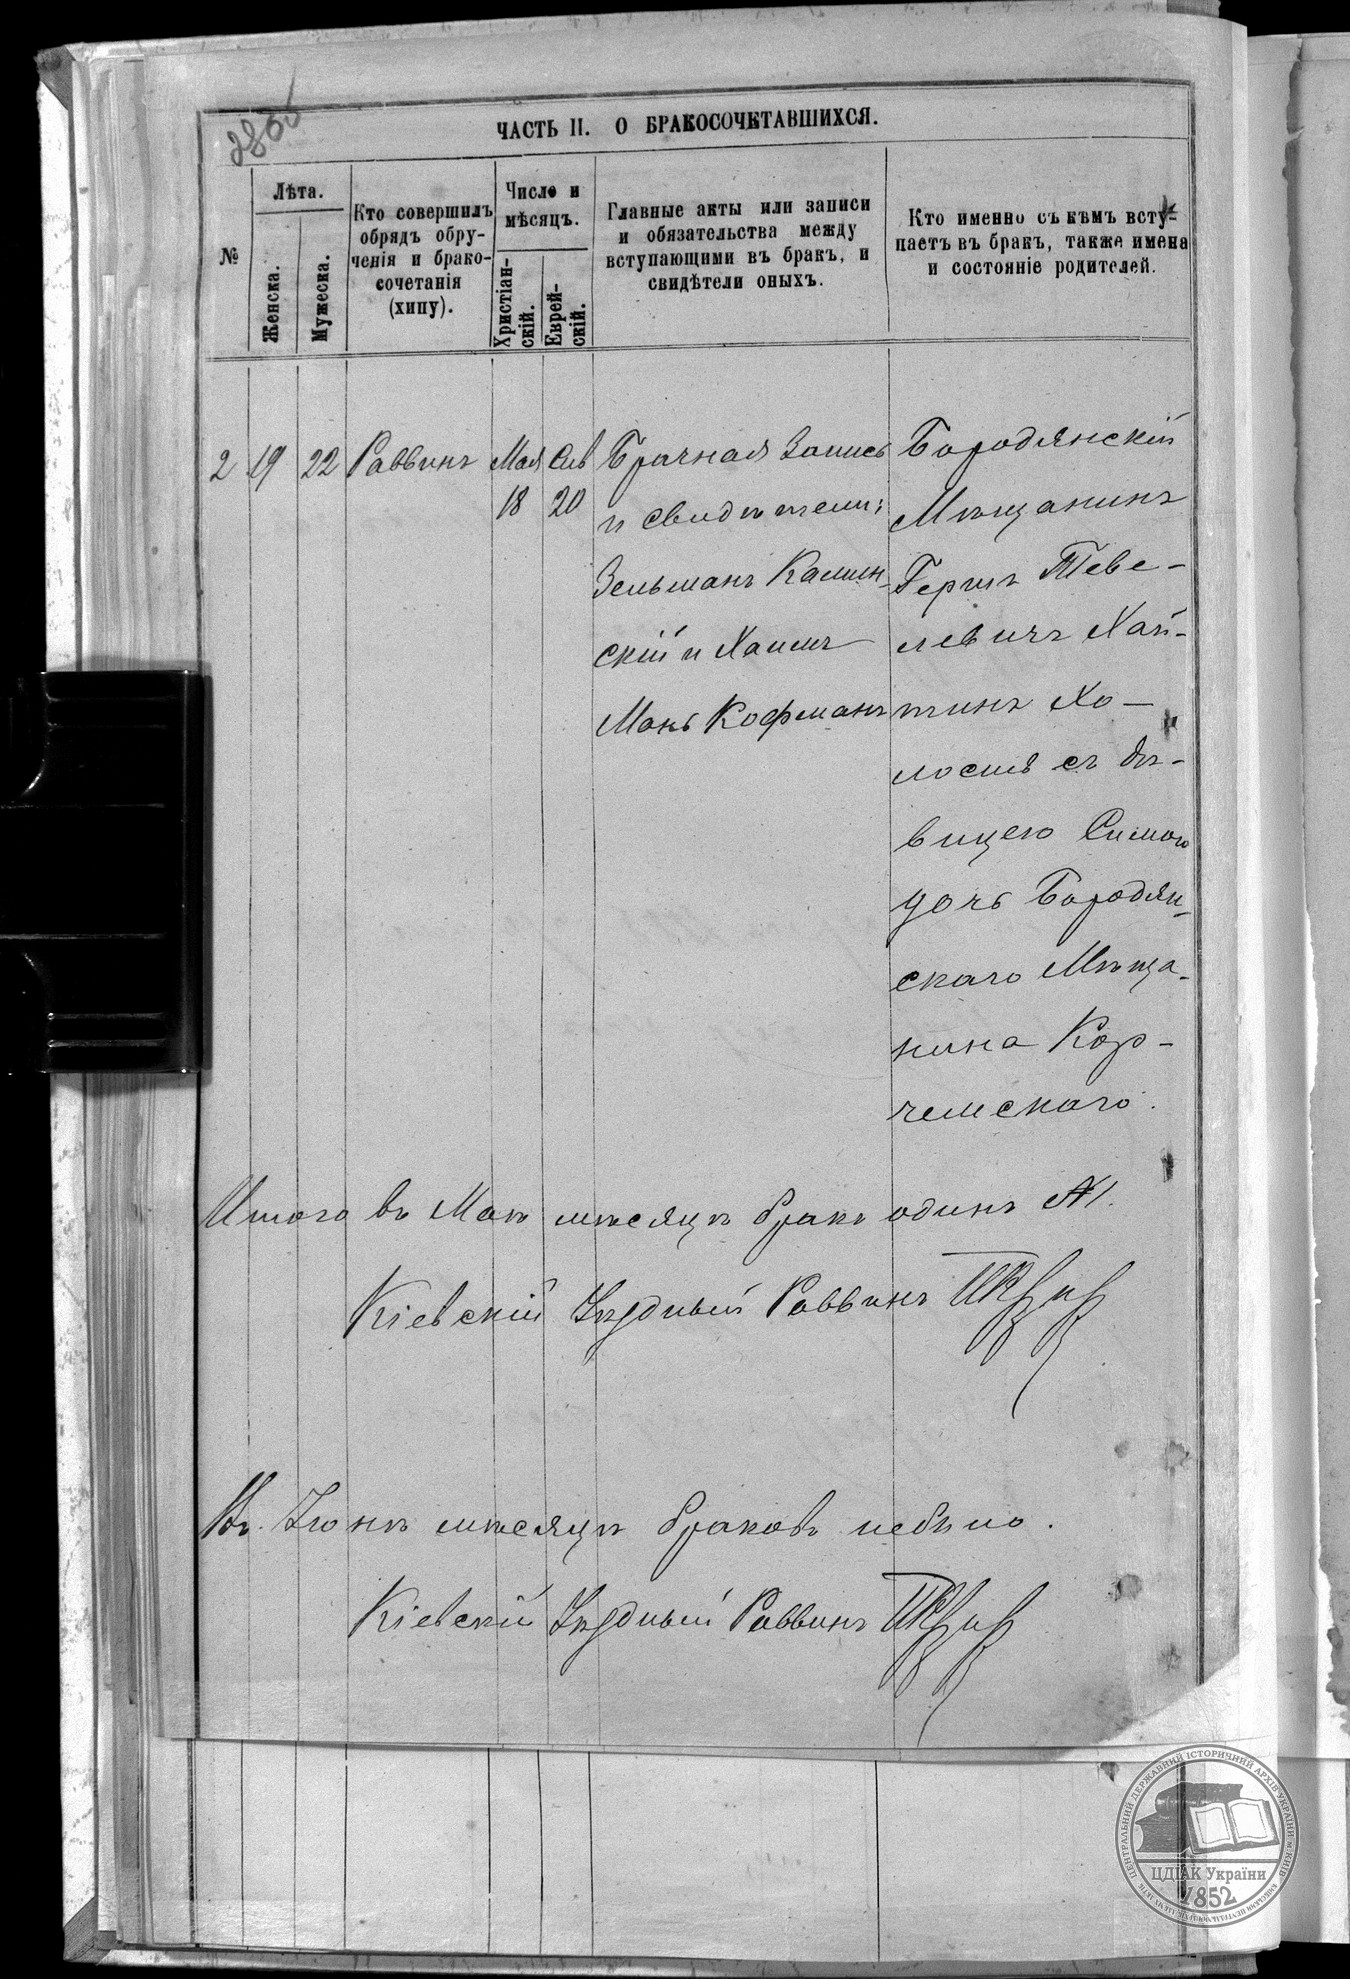 ЧАСТЬ II. О БРАКОСОЧЕТАВШИХСЯ.
№
Лѣта.
Женска.
Мужеска.
Кто совершилъ
обрядъ обру-
ченія и брако-
сочетанія
(хипу).
Число и
мѣсяцъ.
Христіан-
скій.
Еврей-
скій.
Главные акты или записи
и обязательства между
вступающими въ бракъ, и
свидѣтели оныхъ.
Кто именно съ кѣмъ всту-
паетъ въ бракъ, также имена
и состояніе родителей.
2 19 22 Раввинъ Мая Сив
18 20
Брачная Запись
и свидѣтели:
Зельманъ Камин-
скій и Хаимъ
Мань Кофманъ
Бородянскій
Мѣщанинъ
Гершъ Теве-
левичъ Хай-
тинъ Хо-
лостъ съ дѣ-
вицею Симою
дочь Бородян-
скаго Мѣща-
нина Кор-
чемскаго.
Итого въ Маѣ мѣсяцѣ бракъ одинъ №1.
Кіевскій Уѣздный Раввинъ
Въ Іюнѣ мѣсяцѣ браковъ небыло.
Кіевскій Уѣздный Раввинъ
ЦЕНТРАЛЬНИЙ ДЕРЖАВНИЙ ІСТОРИЧНИЙ АРХІВ УКРАЇНИ м.КИЇВ
ЦДІАК України
1852